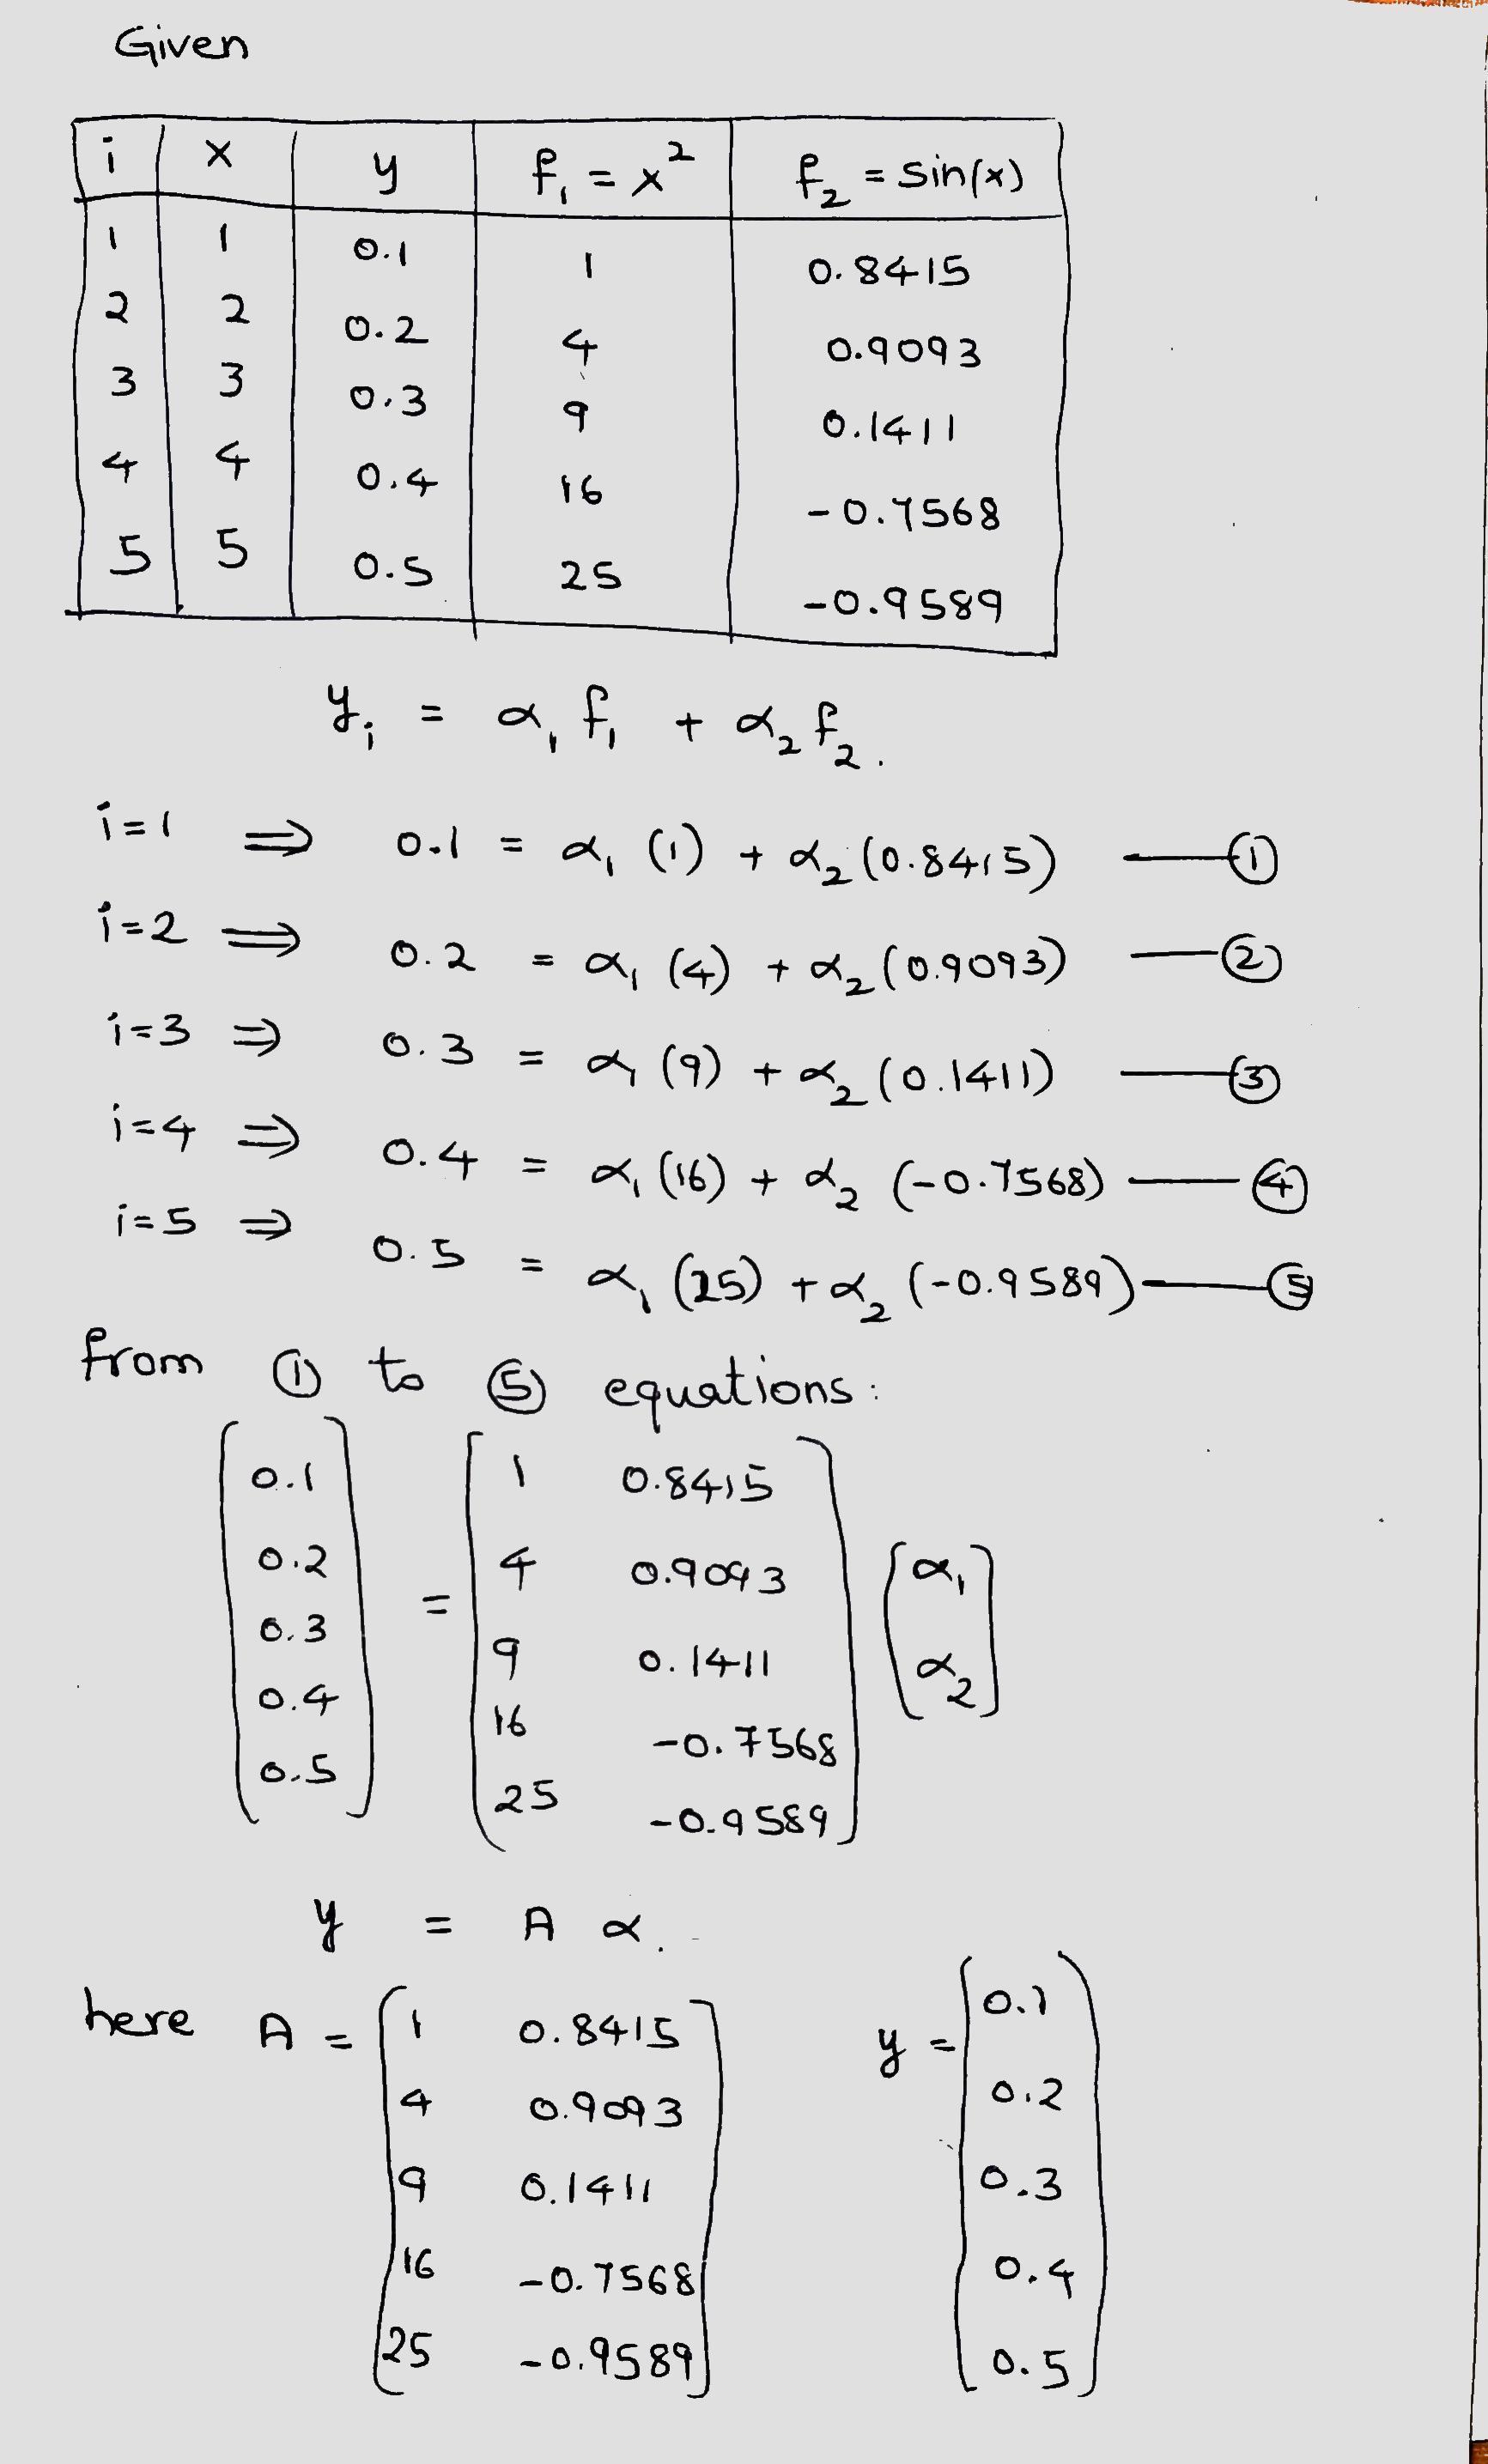 Given
i x y f₁ = x² f₂ = sin(x)
1 1 0.1 1 0.8415
2 2 0.2 4 0.9093
3 3 0.3 9 0.1411
4 4 0.4 16 -0.7568
5 5 0.5 25 -0.9589
yᵢ = α₁ f₁ + α₂ f₂.
i=1 ⇒ 0.1 = α₁ (1) + α₂ (0.8415) — ①
i=2 ⇒ 0.2 = α₁ (4) + α₂ (0.9093) — ②
i=3 ⇒ 0.3 = α₁ (9) + α₂ (0.1411) — ③
i=4 ⇒ 0.4 = α₁ (16) + α₂ (-0.7568) — ④
i=5 ⇒ 0.5 = α₁ (25) + α₂ (-0.9589) — ⑤
from ① to ⑤ equations:
0.1 1 0.8415
0.2 4 0.9093 α₁
= 
0.3 9 0.1411 α₂
0.4 16 -0.7568
0.5 25 -0.9589
y = A α.
here A = 1 0.8415 y = 0.1
4 0.9093 0.2
9 0.1411 0.3
16 -0.7568 0.4
25 -0.9589 0.5